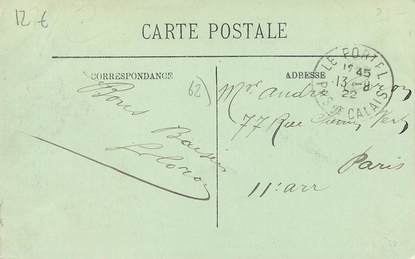 12 €
CARTE POSTALE
CORRESPONDANCE
ADRESSE
LE PORTEL
45
13 - 8
22
PAS DE CALAIS
62
Bons
Baisers
Mr André
77 Rue
Paris
11e arr